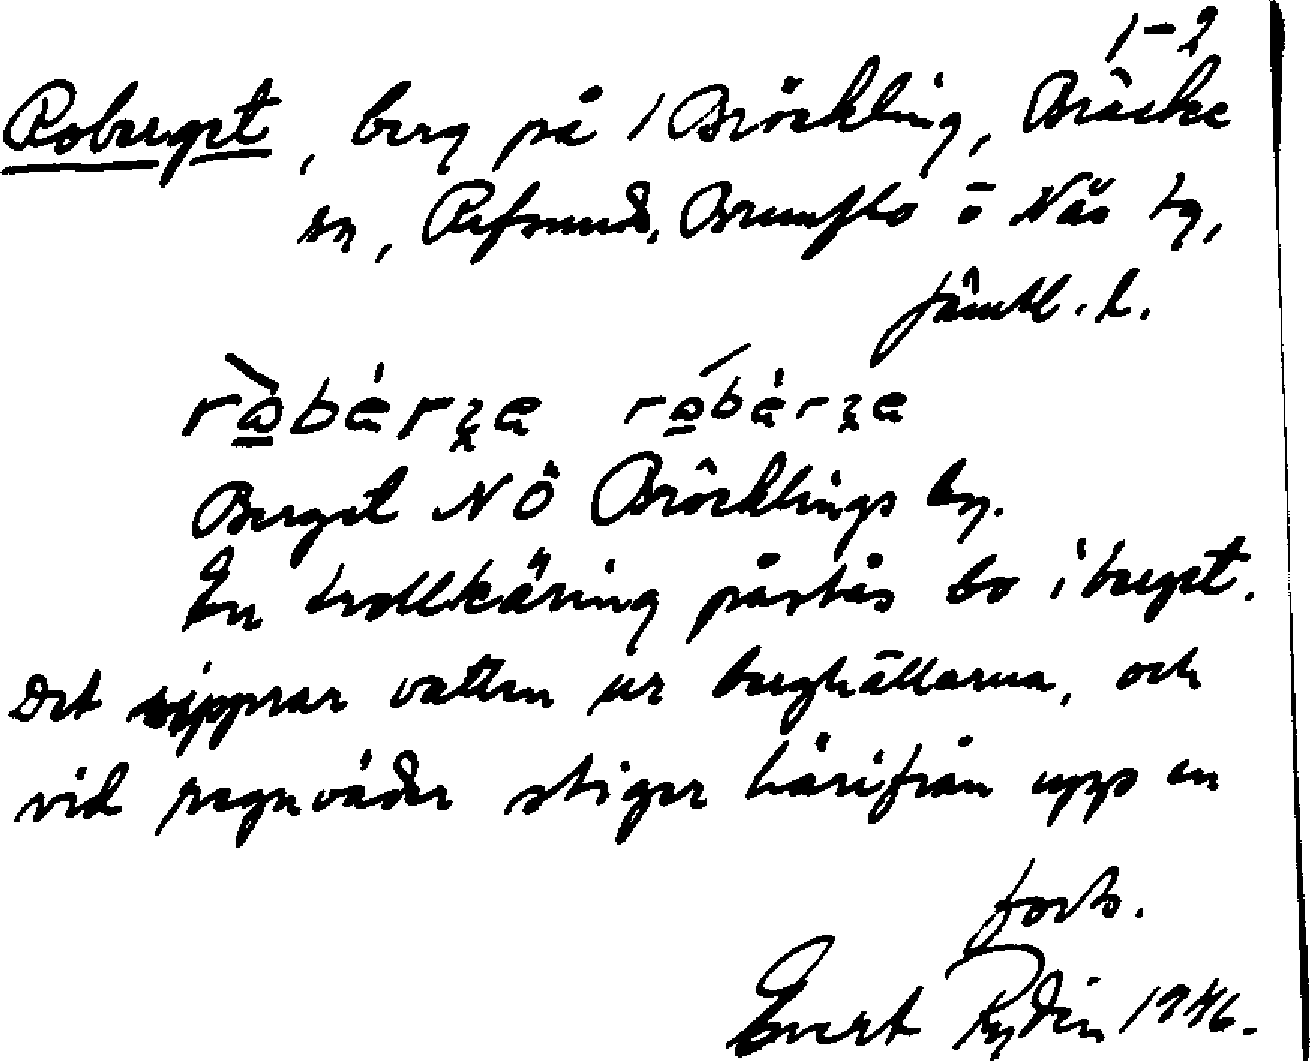 1-2
Roberget, berg på / Bröckling, Bräcke
sn, Refsund, Brunflo o Näs tg,
Jämtl. l.
Berget NÖ Bröcklings by.
En trollkäring påstås bo i berget.
Det sipprar vatten ur berghällarna, och
vid regnväder stiger härifrån upp en
forts.
Evert Rydin 1946.